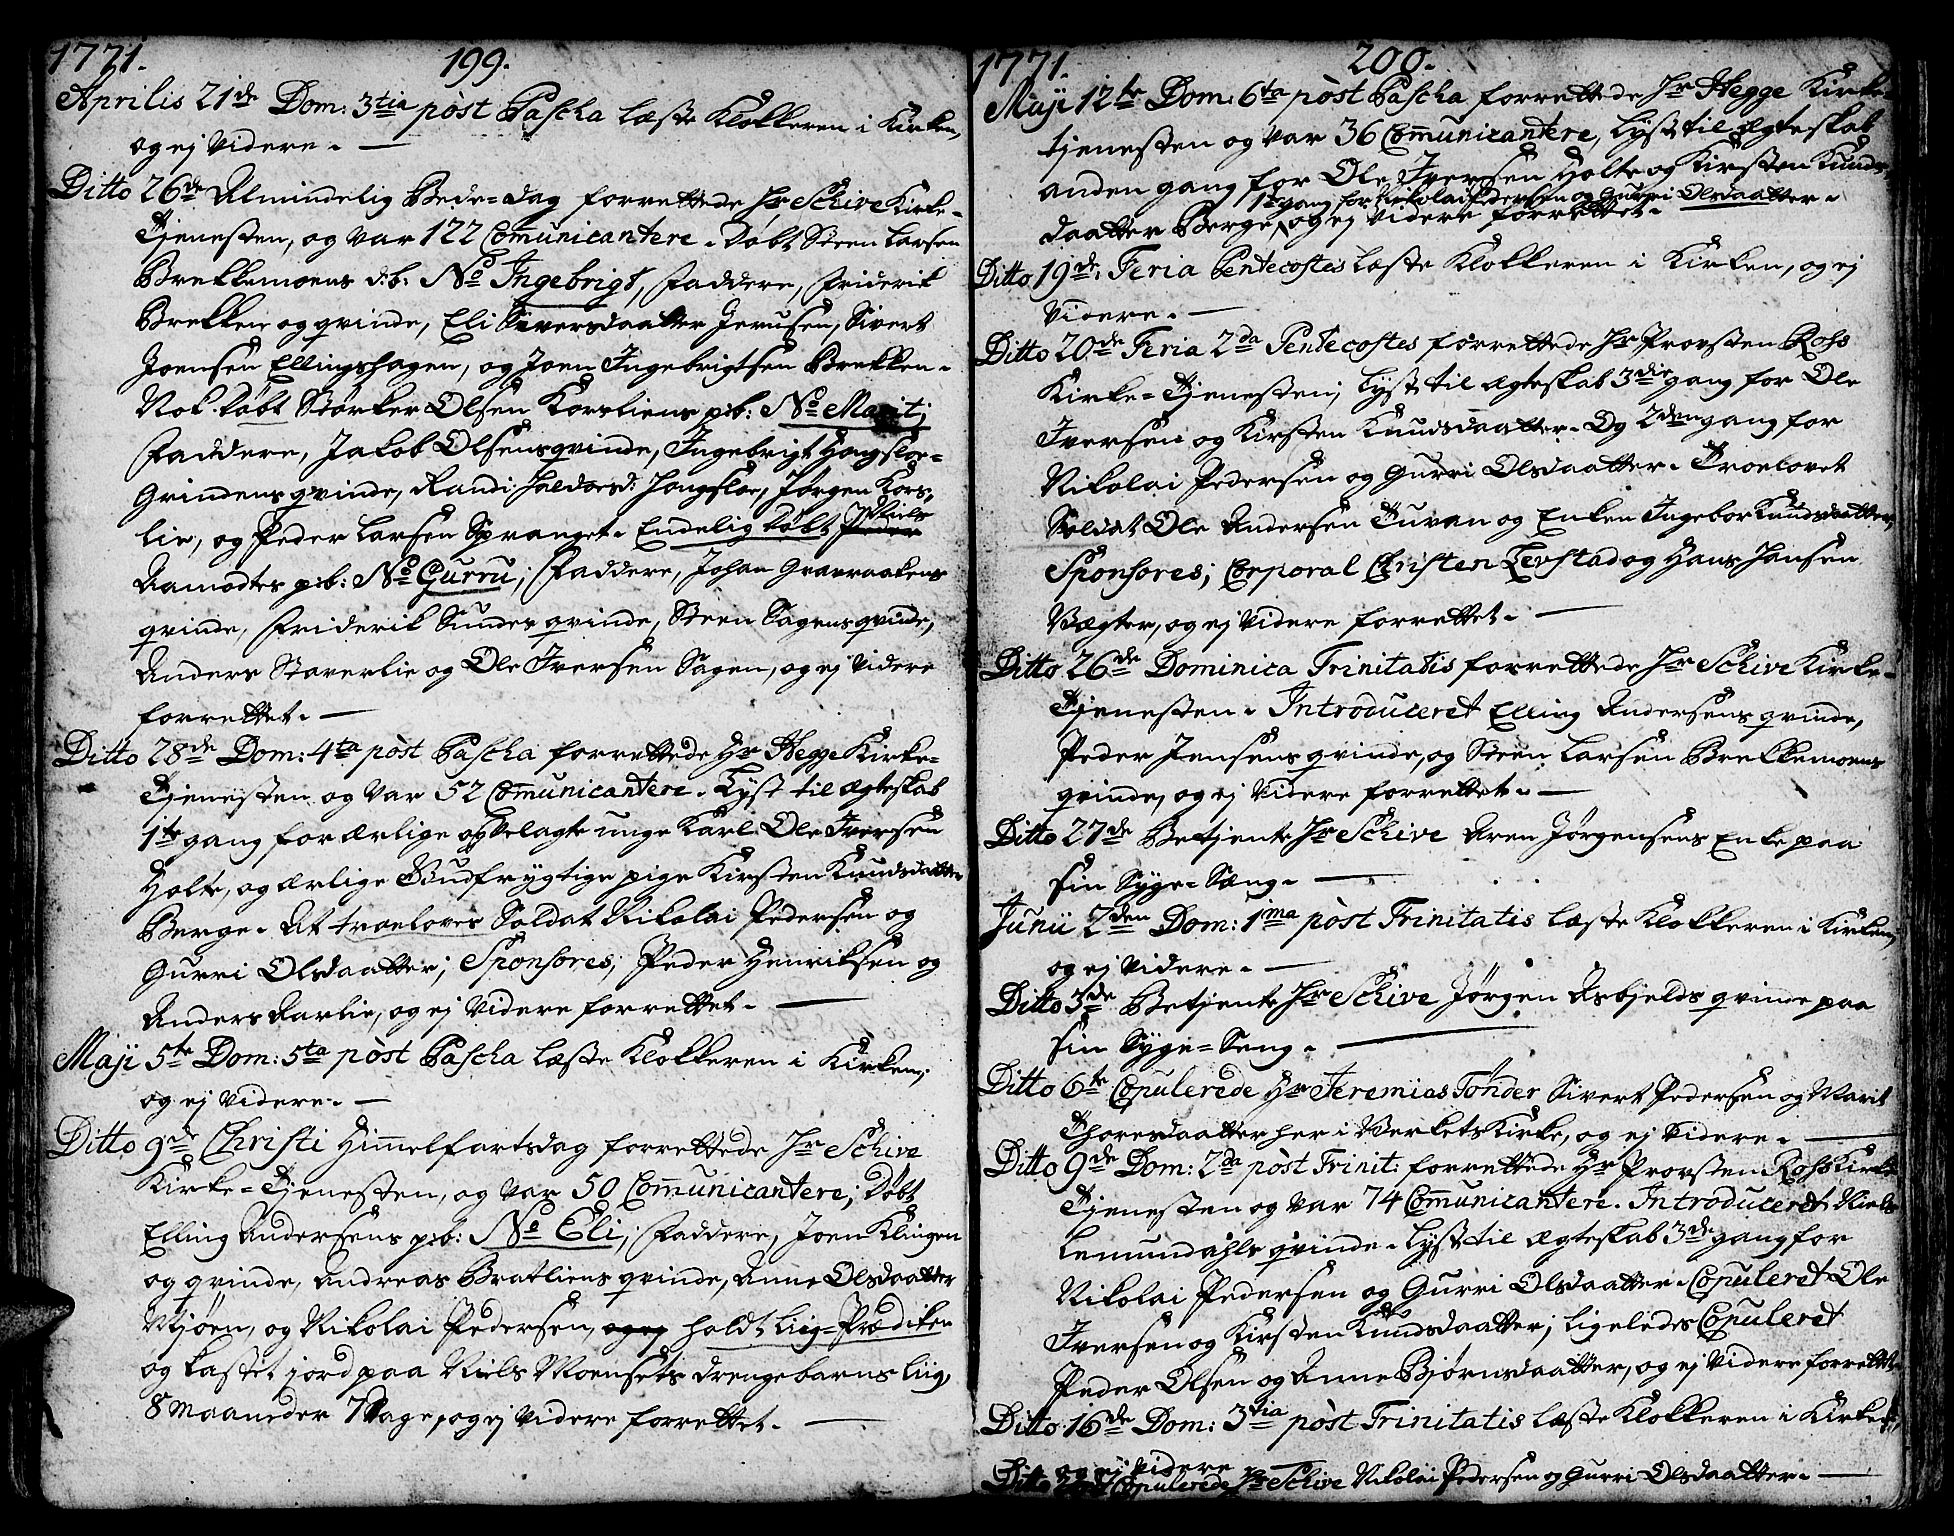 1771. 199.
Aprilis 21de Dom: 3tia pòst Pascha læste Klokkeren i Kirken,
og ej videre.
Ditto 26de Almindelig Bede-Dag forrettede Hr Schive Kirke-
Tjenesten, og var 122 Com̅unicantere. Døbt Steen Larsen
Brekkemoens d:b: No Ingebrigt, Faddere, Friderik
Brekken og qvinde, Eli Siversdaatter Jerusen, Sivert
Joensen Ellingshagen, og Joen Ingebrigtsen Brekken.
Nok døbt Størker Olsen Korsliens p:b: No Marit;
Faddere, Jakob Olsens qvinde, Ingebrigt Hongsloe-
Grindens qvinde, Randi Haldorsd. Hongsloe, Jørgen Kors-
lie, og Peder Larsen Spranget. Endelig døbt Peder Niels
Aamodts p:b: No Gurru; Faddere, Johan Gravraakens
qvinde, Friderik Sundes qvinde, Steen Sagens qvinde,
Anders Staverlie og Ole Iversen Sagen, og ej videre
forrettet.
Ditto 28de Dom: 4ta pòst Pascha forrettede Hr Hegge Kirke-
Tjenesten og var 52 Com̅unicantere. Lyst til Ægteskab
1te gang for ærlige og velagte unge Karl Ole Iversen
Holte, og ærlige Gudfrygtige pige Kirsten Knudsdaatter
Berge. At troeloves Soldat Nikolai Pedersen og
Gurri Olsdaatter; Sponsores; Peder Henriksen og
Anders Aarlie, og ej videre forrettet.
Maji 5te Dom: 5ta pòst Pascha læste Klokkeren i Kirken,
og ej videre.
Ditto 9de Christi Him̅elfartsdag forrettede Hr Schive
Kirke-Tjenesten, og var 50 Com̅unicantere; Døbt
Elling Andersens p:b: No Eli; Faddere, Joen Klingen
og qvinde, Andreas Bratliens qvinde, Anne Olsdaatter
Mjøen, og Nikolai Pedersen, og ej holdt Liig-Prædiken
og kastet jord paa Niels Moensets drengebarns Liig,
8 Maaneder 7 Dage, og ej videre forrettet.
1771. 200.
Maji 12te Dom: 6ta pòst Pascha forrettede Hr Hegge Kirke-
tjenesten og var 36 Com̅unicantere, Lyst til Ægteskab
anden gang for Ole Iversen Holte og Kirsten Knuds-
1te gang for Nikolai Pedersen og Gurri Olsdaatter.
daatter Berge, og ej videre forrettet.
Ditto 19de. Feria Pentecostes læste Klokkeren i Kirken, og ej
videre.
Ditto 20de Feria 2da Pentecostes forrettede Hr Provsten Ross
Kirke-Tjenesten; Lyst til Ægteskab 3die gang for Ole
Iversen og Kirsten Knudsdaatter. Og 2den gang for
Nikolai Pedersen og Gurri Olsdaatter. Troelovet
Soldat Ole Andersen Tuvan og Enken Ingebor Knudsdaatter,
Sponsores; Corporal Christen Levstad og Hans Hansen
Vægter, og ej videre forrettet.
Ditto 26de Dominica Trinitatis forrettede Hr Schive Kirke-
Tjenesten. Introduceret Elling Andersens qvinde,
Peder Jensens qvinde, og Steen Larsen Brekkemoens
qvinde, og ej videre forrettet.
Ditto 27de Betjente Hr Schive Aren Jørgensens Enke paa
sin Syge-Sæng.
Junii 2den Dom: 1ma pòst Trinitatis læste Klokkeren i Kirken,
og ej videre.
Ditto 3de Betjente Hr Schive Jørgen Asbjelds qvinde paa
sin Syge-Seng.
Ditto 6te Copulerede Hr Jeremias Tönder Sivert Pedersen og Marit
Thoresdaatter her i Verkets Kirke, og ej videre.
Ditto 9de Dom: 2da pòst Trinit: forrettede Hr Provsten Ross Kirke
Tjenesten og var 74 Com̅unicantere. Introduceret Niels
Lemundahls qvinde. Lyst til Ægteskab 3de gang for
Nikolai Pedersen og Gurri Olsdaatter. Copuleret Ole
Iversen og Kirsten Knudsdaatter; ligeledes Copuleret
Peder Olsen og Anne Bjørnsdaatter, og ej videre forrettet.
Ditto 16de Dom: 3tia pòst Trinitatis læste Klokkeren i Kirken,
og ej videre
Ditto Copulerede Hr Schive Nikolai Pedersen og Gurri Olsdaatter.